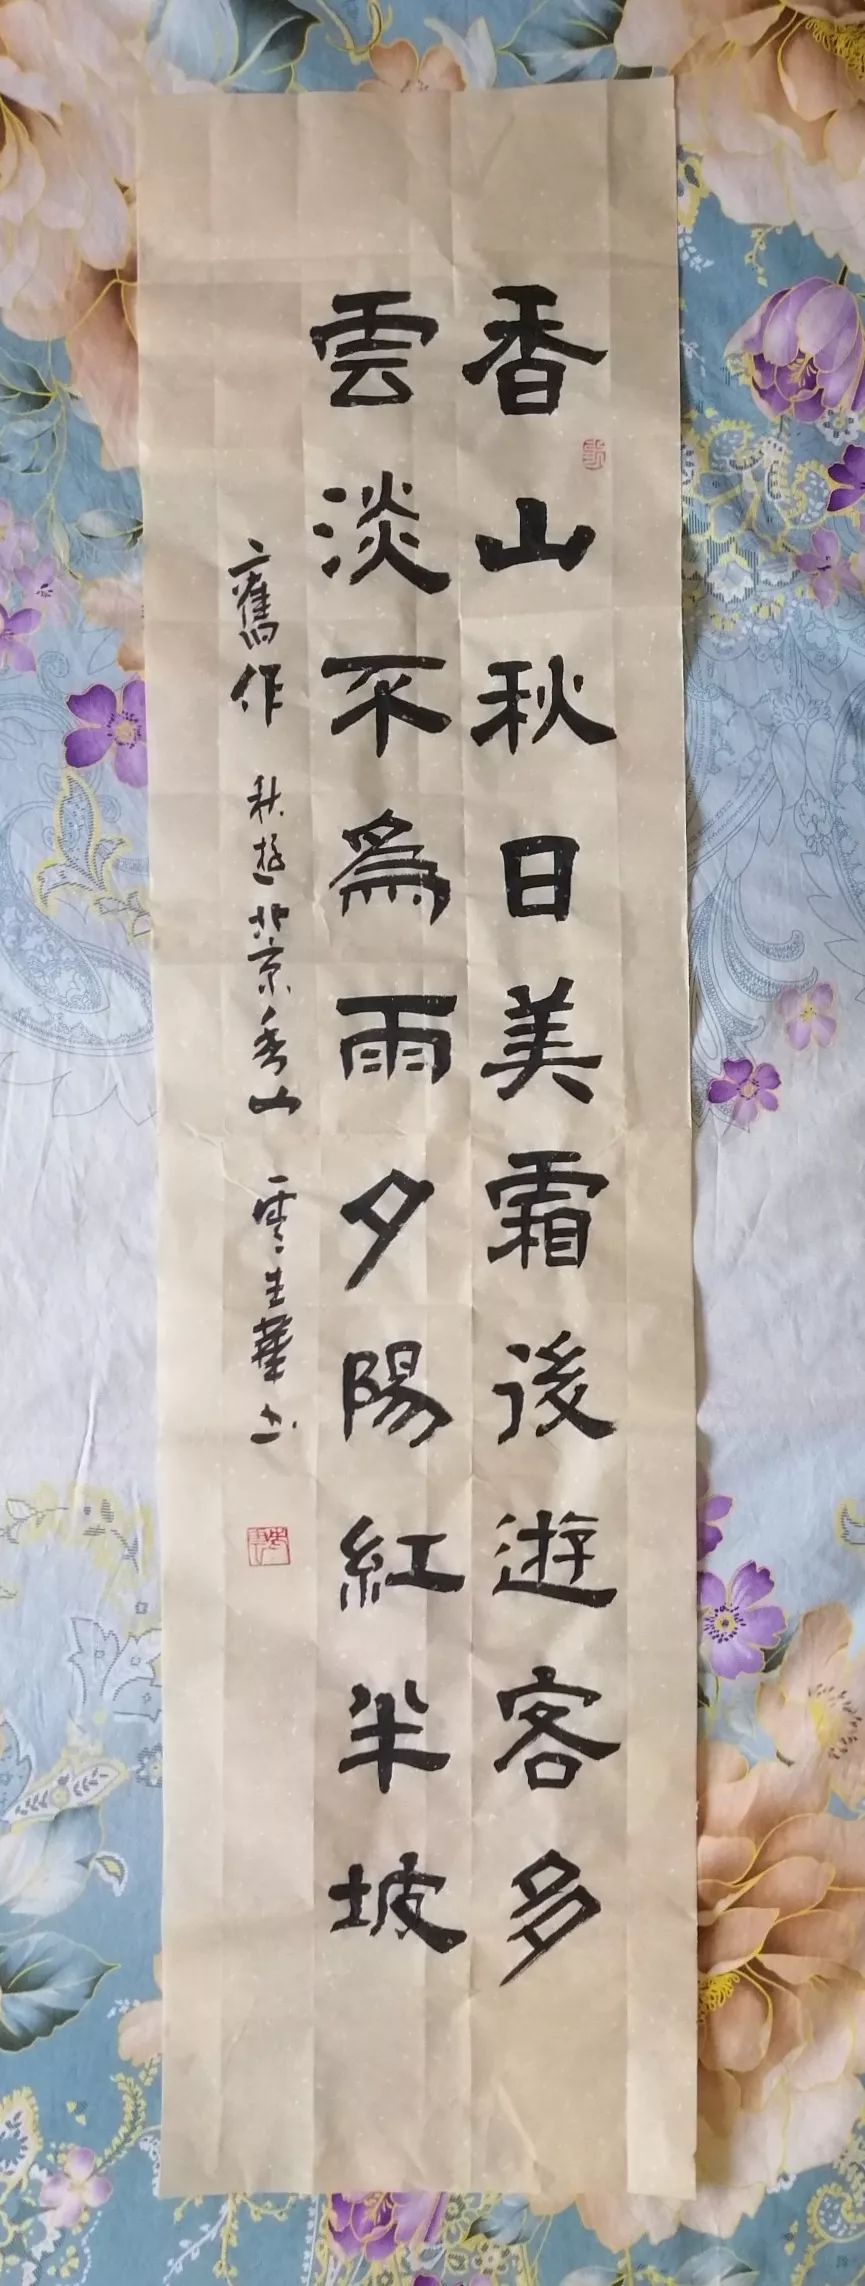 香山秋日美霜後遊客多
雲淡不為雨夕陽紅半坡
舊作 秋遊北京香山 雲生華书